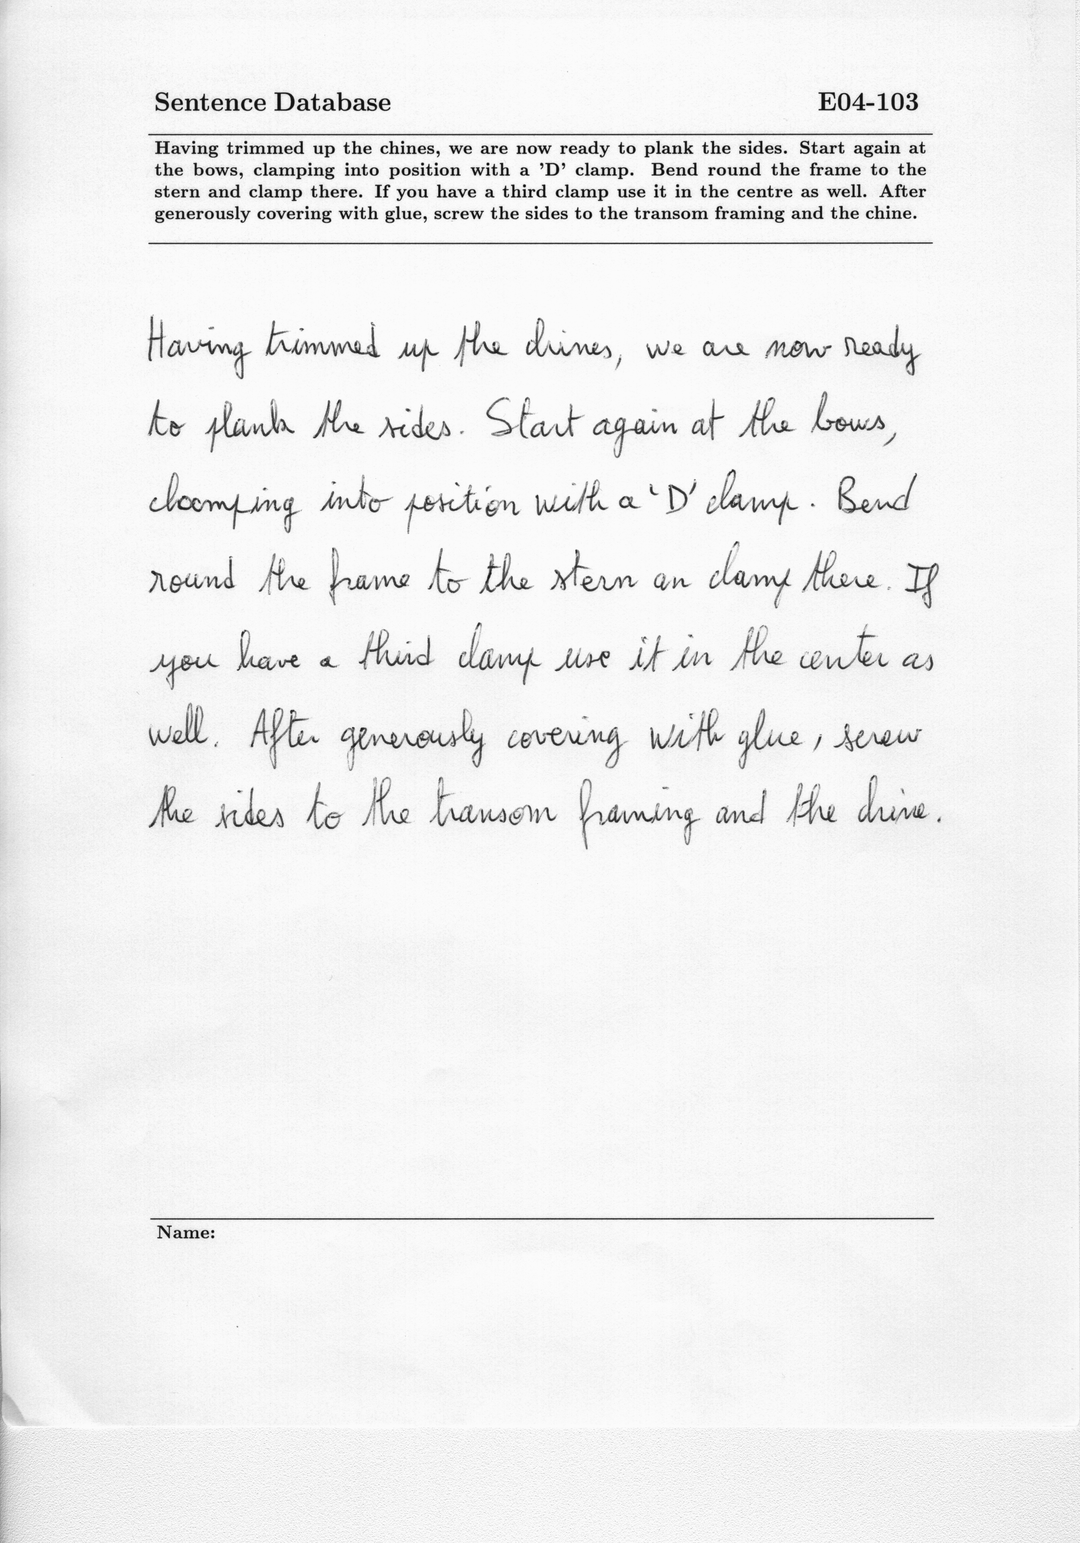 Sentence Database E04-103
Having trimmed up the chines, we are now ready to plank the sides. Start again at
the bows, clamping into position with a 'D' clamp. Bend round the frame to the
stern and clamp there. If you have a third clamp use it in the centre as well. After
generously covering with glue, screw the sides to the transom framing and the chine.
Having trimmed up the chines, we are now ready
to plank the sides. Start again at the bows,
clamping into position with a 'D' clamp. Bend
round the frame to the stern an clamp there. If
you have a third clamp use it in the center as
well. After generously covering with glue, screw
the sides to the transom framing and the chine.
Name: